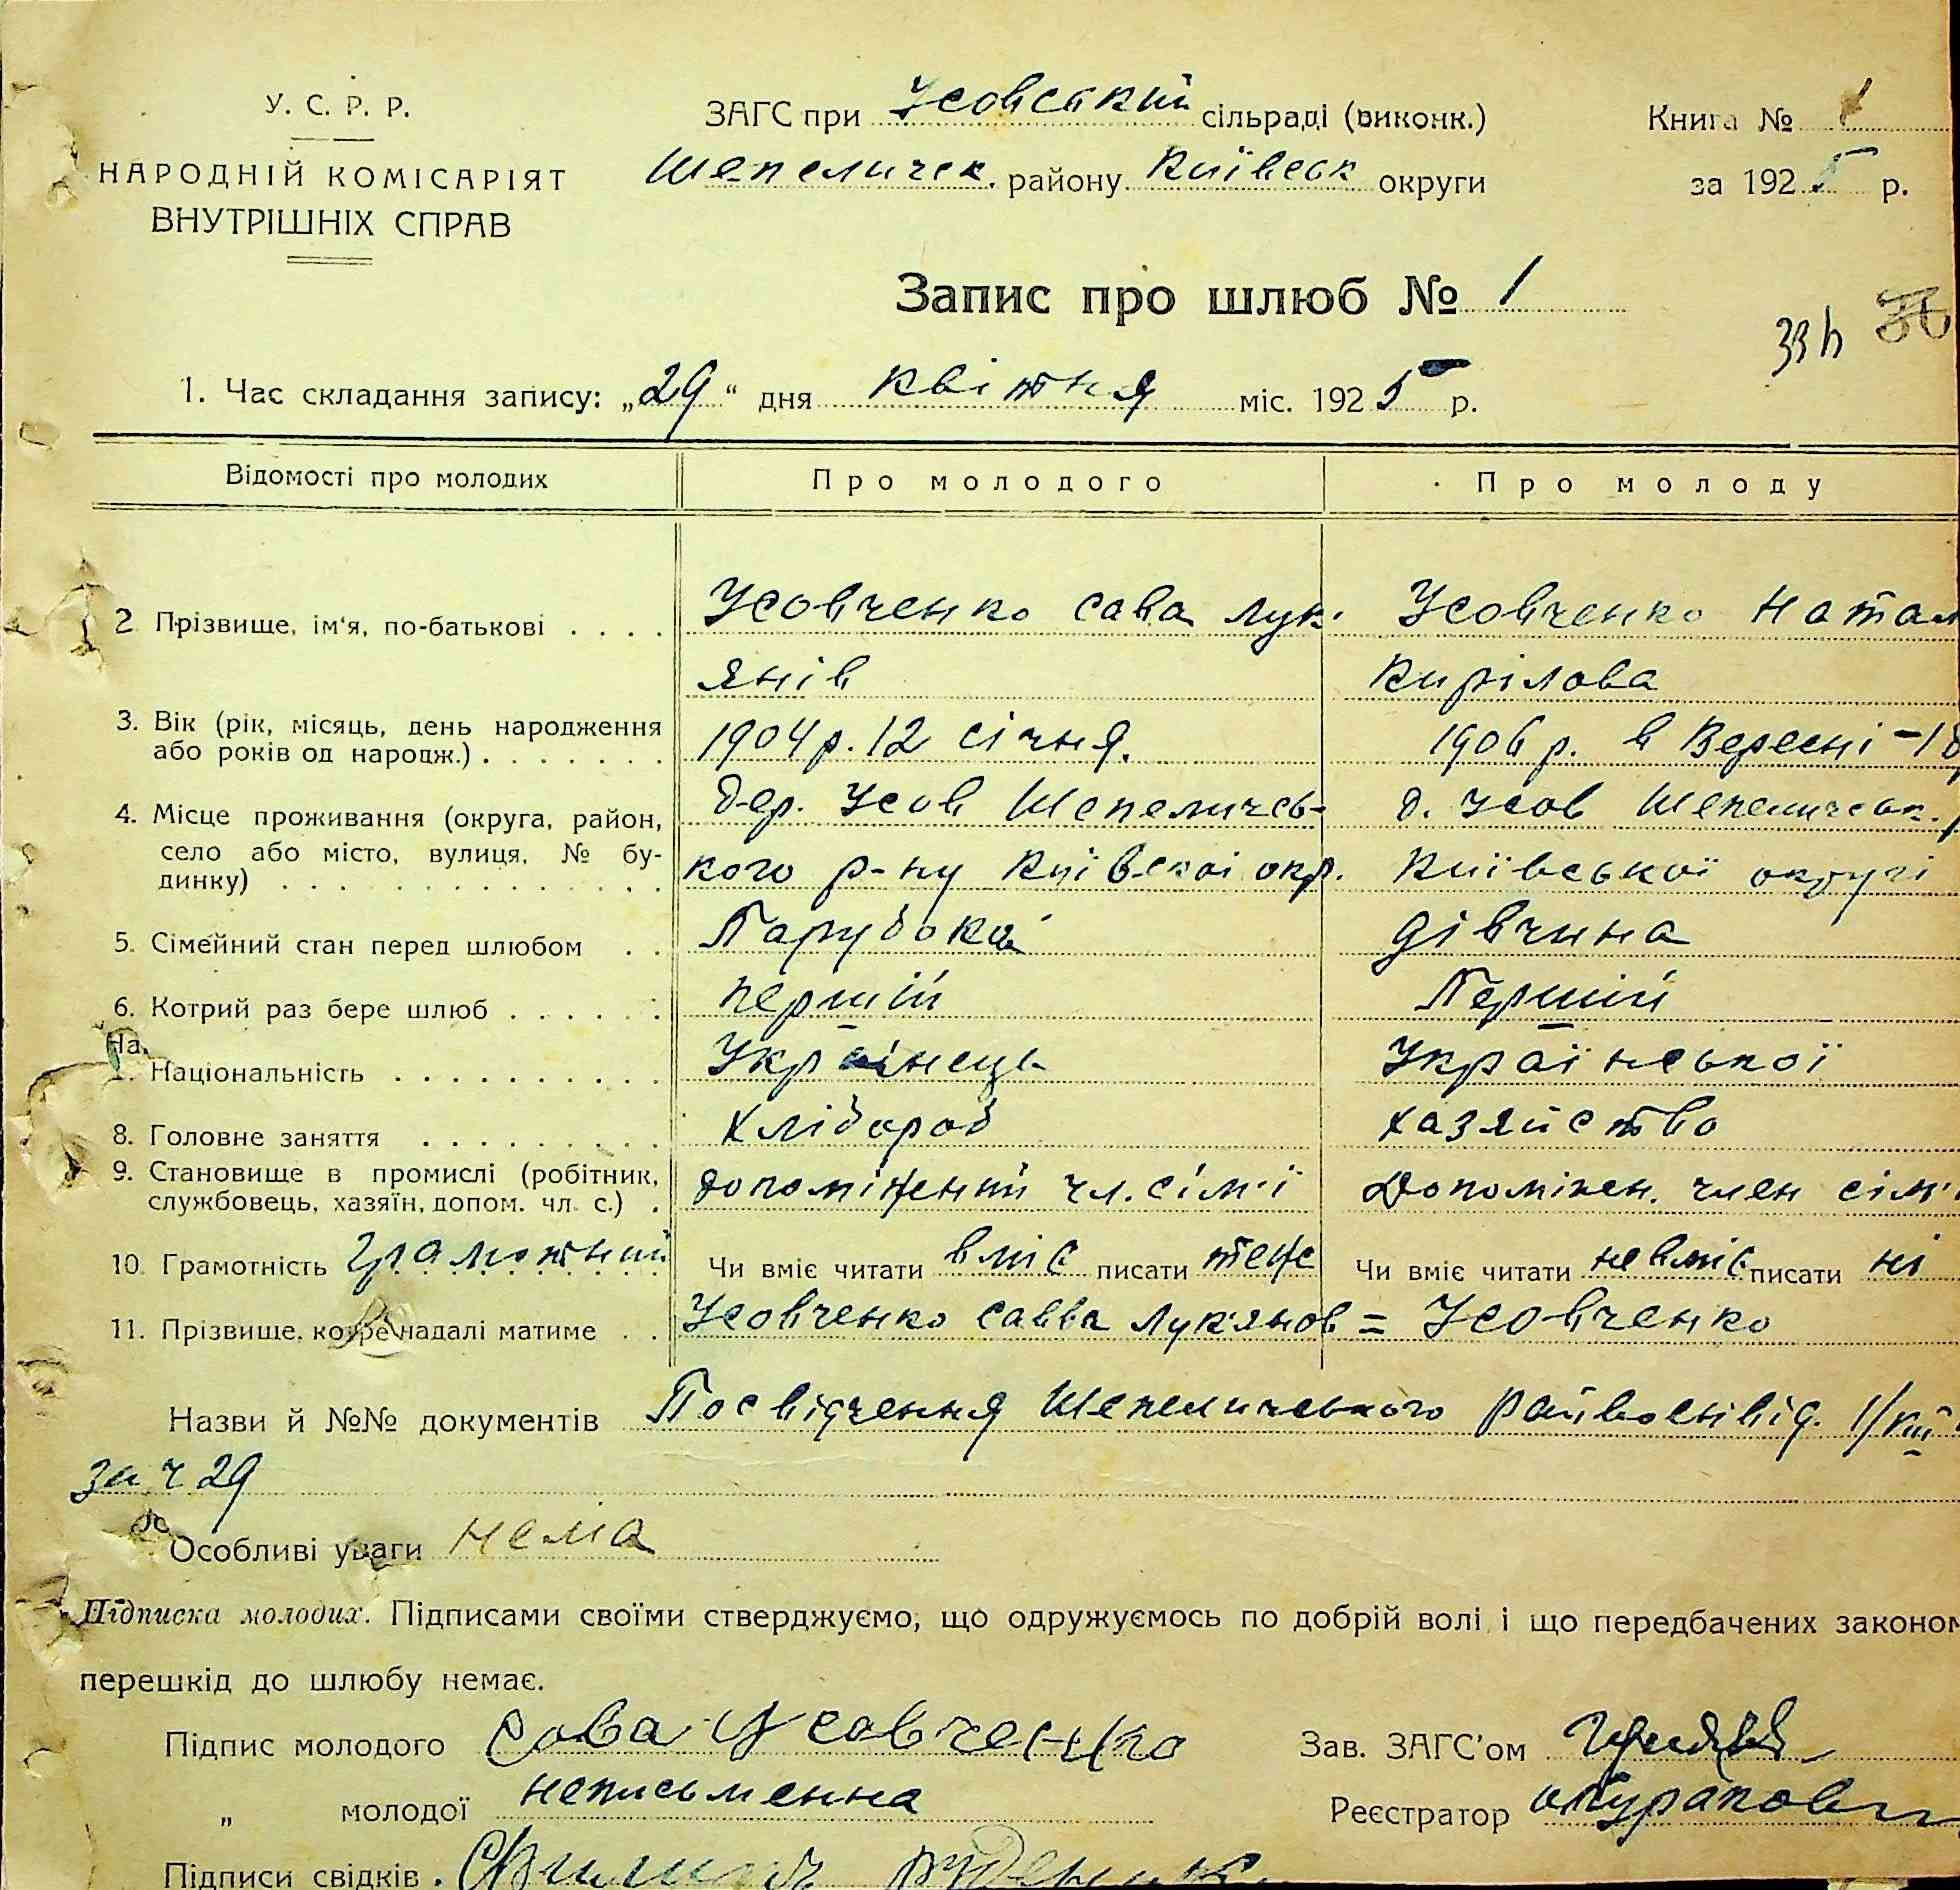 У. С. Р. Р.
НАРОДНІЙ КОМІСАРІЯТ
ВНУТРІШНІХ СПРАВ
ЗАГС при Усовский сільраді (виконк.)
Шепеличск. району Київськ округи
Книга № 1
за 1925 р.
Запис про шлюб № 1
33
1. Час складання запису: „29“ дня квітня міс. 1925 р.
Відомості про молодих Про молодого Про молоду
2 Прізвище, ім'я, по-батькові . . . . Усовченко сава лук' Усовченко Натал
янів Кирілова
3. Вік (рік, місяць, день народження
або років од народж.) . . . . . . . 1904 р. 12 січня. 1906 р. в Вересні - 18
4. Місце проживання (округа, район, дер. Усов Шепеличсь- д. Усов Шепеличськ.
село або місто, вулиця, № бу-
динку) . . . . . . . . . . . . . кого р-ну Київскоі окр. Київської округі
5. Сімейний стан перед шлюбом . . Парубокай дівчина
6. Котрий раз бере шлюб . . . . . . першій Першій
На.
Національність . . . . . . . . . . Українець Української
8. Головне заняття . . . . . . . . . Хлібороб хазяйство
9. Становище в промислі (робітник,
службовець, хазяїн, допом. чл. с.) . допоміжений чл. сім'ї Допоміжен. член сім'
10. Грамотність Грамотний Чи вміє читати вміє писати теж Чи вміє читати невміє писати ні
11. Прізвище, котре надалі матиме . . Усовченко Савва Лук'янов = Усовченко
Назви й №№ документів Посвідчення Шепеличського Райвоенвід.
за ч 29
Особливі уваги нема
Підписка молодих. Підписами своїми стверджуємо, що одружуємось по добрій волі і що передбачених законом
перешкід до шлюбу немає.
Підпис молодого Сава Усовченко Зав. ЗАГС'ом
„ молодої неписьменна Реєстратор
Підписи свідків .